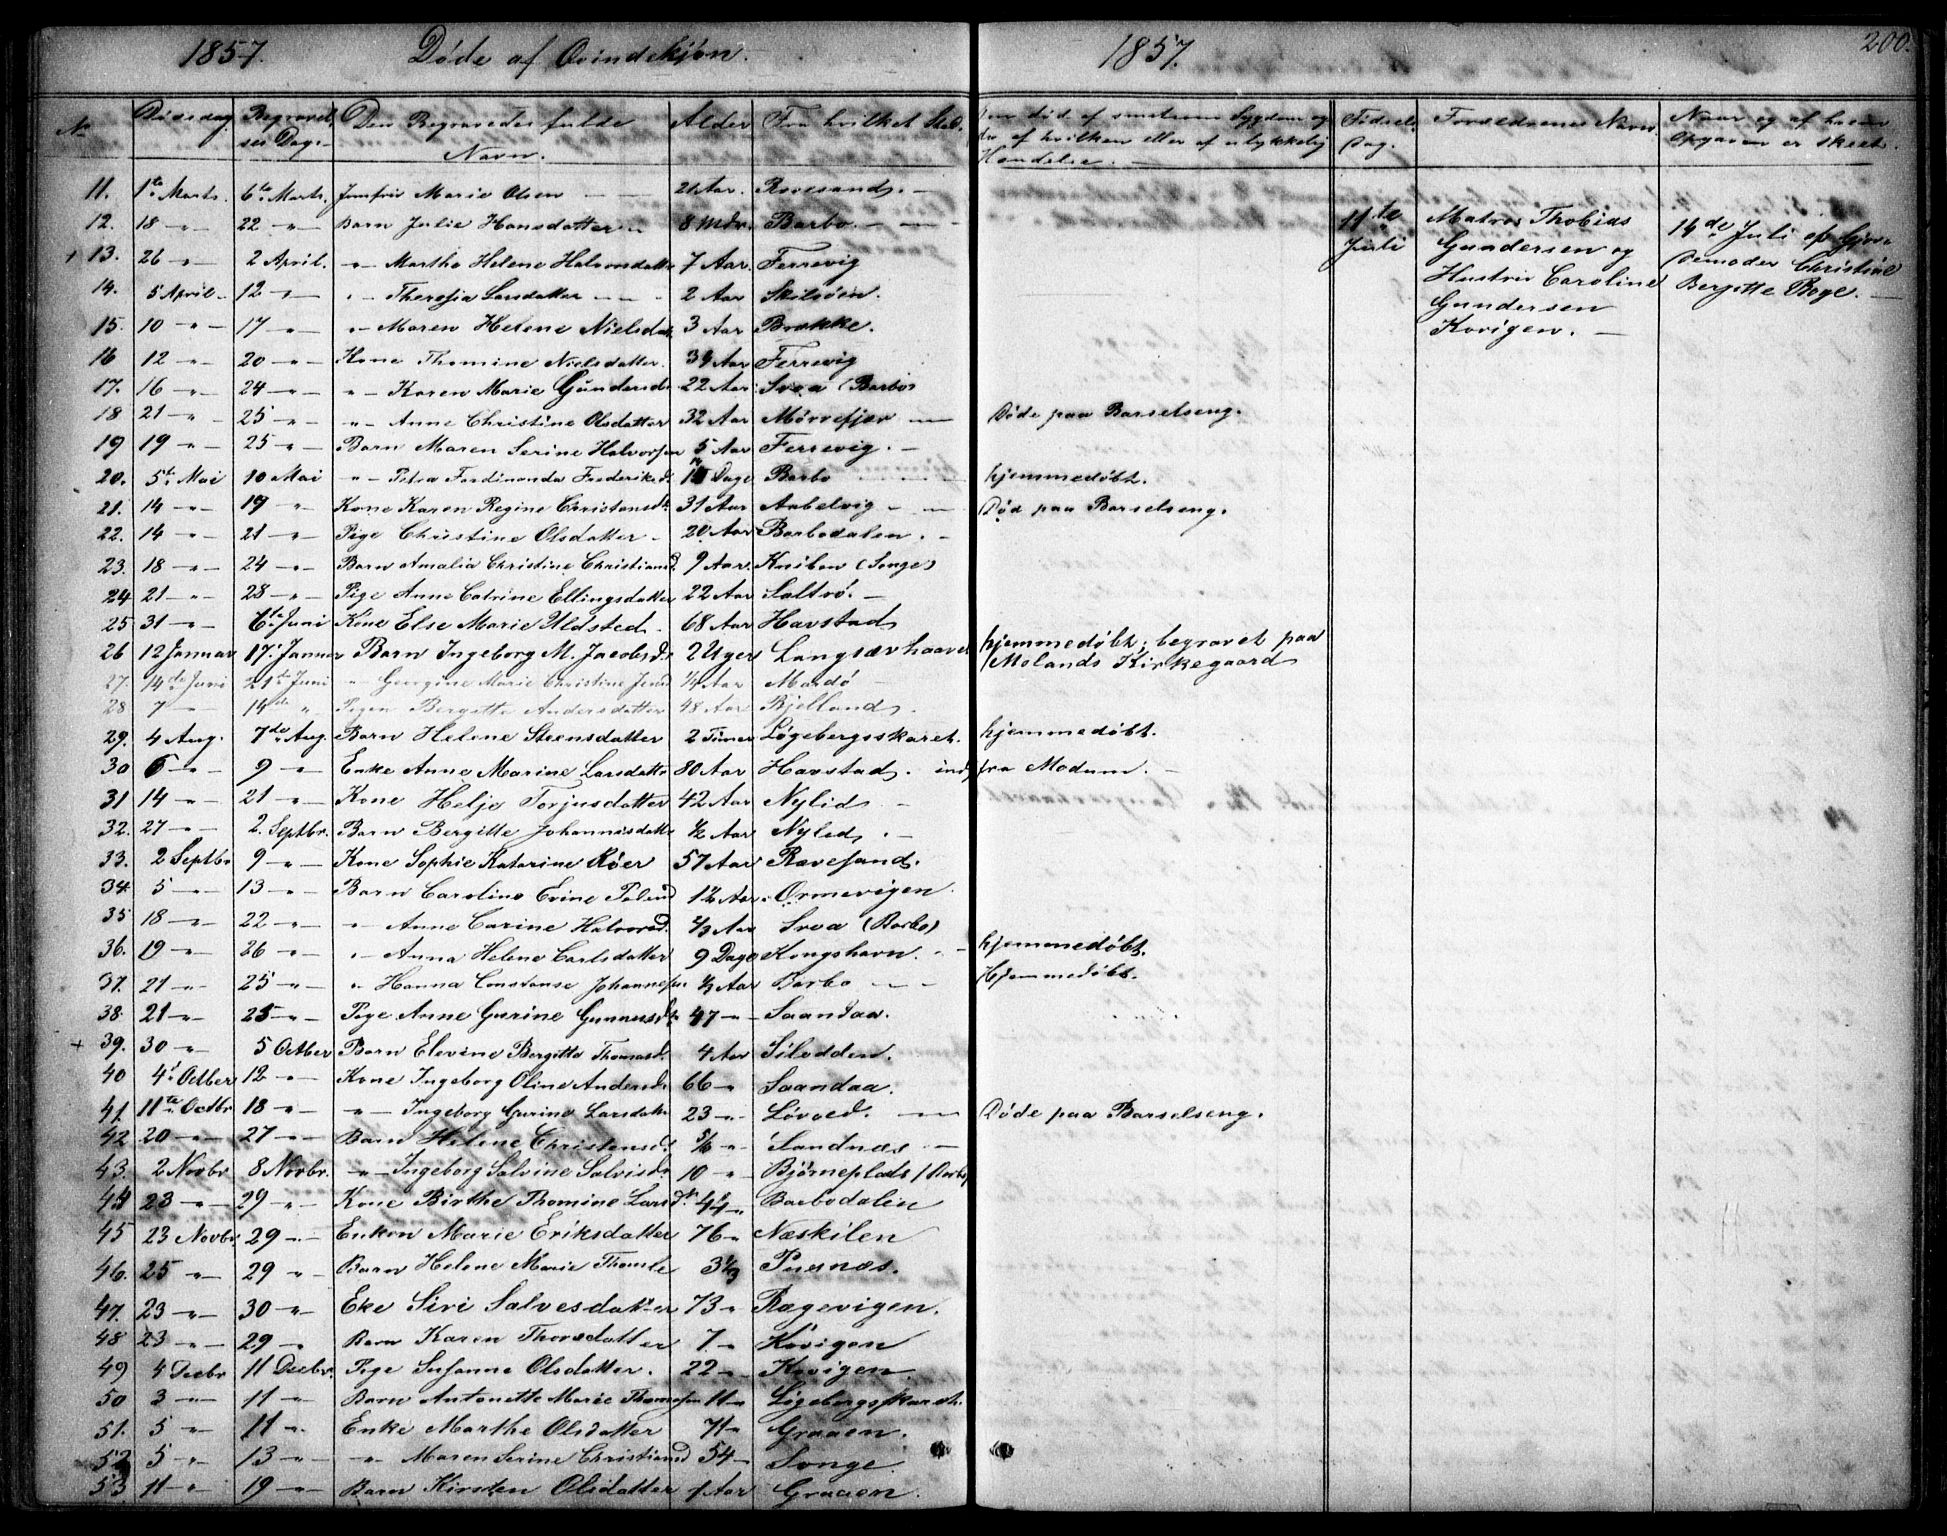 1857. Døde af Qvindekjøn.
1857. 200.
No Dødsdag. Begravelses Dag. Den Begravedes fulde Navn. Alder Fra hvilket Sted.
død af smitsom Sygdom og af hvilken eller af ulykkelig Hændelse.
Fødsels Dag. Forældrenes Navn. Naar og af hvem Opgaven er skeet.
11. 1te Marts. 6te Marts. Jomfru Marie Olsen Aar. Revesand.
12. 18 " 22 " Barn Julie Hansdatter 8 Mdr. Barbo.
13. 26 " 2 April. " Marthe Helene Halvorsdatter 7 Aar. Ferrevig
14. 5 April 12 " " Theresia Larsdatter 2 Aar Skilsøen.
15. 10 " 17 " " Maren Helene Nielsdat. 3 Aar Brække.
16 12 " 20 " Kone Thomine Nielsdatter. 34 Aar Ferrevig
17. 16 " 24 " " Karen Marie Gundersd. 22 Aar Svea (Barbo)
18 21 " 25 " " Anne Christine Olsdatter 32 Aar Mørrefjær Døde paa Barselseng.
19 19 " 25 " Barn Maren Serine Halvorsen 5 Aar Ferrevig.
20. 5te Mai 10 Mai " Petra Ferdinanda Frederiksd. Dage Barbo hjemmedøbt.
21. 14 " 19 " Kone Karen Regine Christensd. 31 Aar Aabelvig Død paa Barselseng.
22. 14 " 21 " Pige Christine Olsdatter 20 Aar Barbodalen.
23. 18 " 24 " Barn Amalia Christine Christiansd. 9 Aar. Kniben (Songe)
24 21 " 28 " Pige Anne Catrine Ellingsdatter 22 Aar Saltrø.
25 31 " 6te Juni Kone Else Marie Uldsted. 68 Aar Havstad
26 12 Januar 17. Januar Barn Ingeborg M. Jacobsd. 2 Uger Langsævhaavet hjemmedøbt; begravet paa
Molands Kirkegaard
27. 14de Juni 21te Juni " Georgine Marie Christine Jensd. ¼ Aar Mærdø
28 7 " 14de " Pigen Bergitte Andersdatter 48 Aar Bjelland.
29. 4 Aug. 7de Aug. Barn Helene Steensdatter 2 Timer Løgebergsskaret. hjemmedøbt.
30 6 " 9 " Enke Anne Marine Larsdatte 80 Aar Havstad. ind fra Modum.
31 14 " 21 " Kone Helje Torjusdatter 42 Aar Nylid
32. 27 " 2. Septbr. Barn Bergitte Johannesdatte ½ Aar Nylid
33. 2 Septbr 9 " Kone Sophie Katarine Röer 57 Aar Ravesand.
34. 5 " 13 " Barn Caroline Evine Palm 1½ Aar. Ormevigen.
35 18 " 22 " " Anne Carine Halvorsd. ⅓ Aar Svea (Barbo)
36. 19 " 26 " " Anna Helene Carlsdatter 9 Dage Kongshavn. hjemmedøbt.
37. 21 " 25 " " Hanna Constanse Johannesen ½ Aar Barbo Hjemmedøbt.
38. 21 " 25 " Pige Anne Gurine Gunnusd. 47 " Saandaa.
+ 39. 30 " 5 Octber Barn Elevine Bergitte Thomasd. 4 Aar Silodden.
40 4. Octber 12 " Kone Ingeborg Oline Andersd. 66 " Saandaa.
41. 11te Octbr 18 " " Ingeborg Gurine Larsdatte 23 " Løvold. Døde paa Barselseng.
42 20 " 27 " Barn Helene Christensd. 5/6 " Sandnæs
43. 2 Novbr 8 Novbr. " Ingeborg Salvine Salvesd. 10 " Bjørneplads (Barbo)
44 23 " 29 " Kone Birthe Thomine Larsd. 44 " Barbodalen
45 23 Novbr 29 " Enken Marie Eriksdatter 76 " Næskilen
46. 25 " 29 " Barn Helene Marie Thomle 3½ Pusnæs.
47. 23 " 30 " Eke Siri Salvesdatter 73 " Rægevigen.
48 23 " 29 " Barn Karen Thorsdatter 7 " Kovigen
49 4 Decbr 11 Decbr. Pige Susanne Olsdatter. 22 " Kovigen.
50 3 " 11 " Barn Antonette Marie Thomesen 11 " Løgebergsskaret.
51. 5 " 11 " Enke Marthe Olsdatter 71 " Graaen.
52 5 " 13 " " Maren Serine Christiansd. 54 " Songe.
53 11 " 19 " Barn Kirsten Olsdatter 1 Aar Graaen.
11te Juli Matros Thobias
Gundersen og
Hustru Caroline
Gundersen
Kovigen.
14de Juli af Gjor-
demoder Christine
Bergitte Boye.